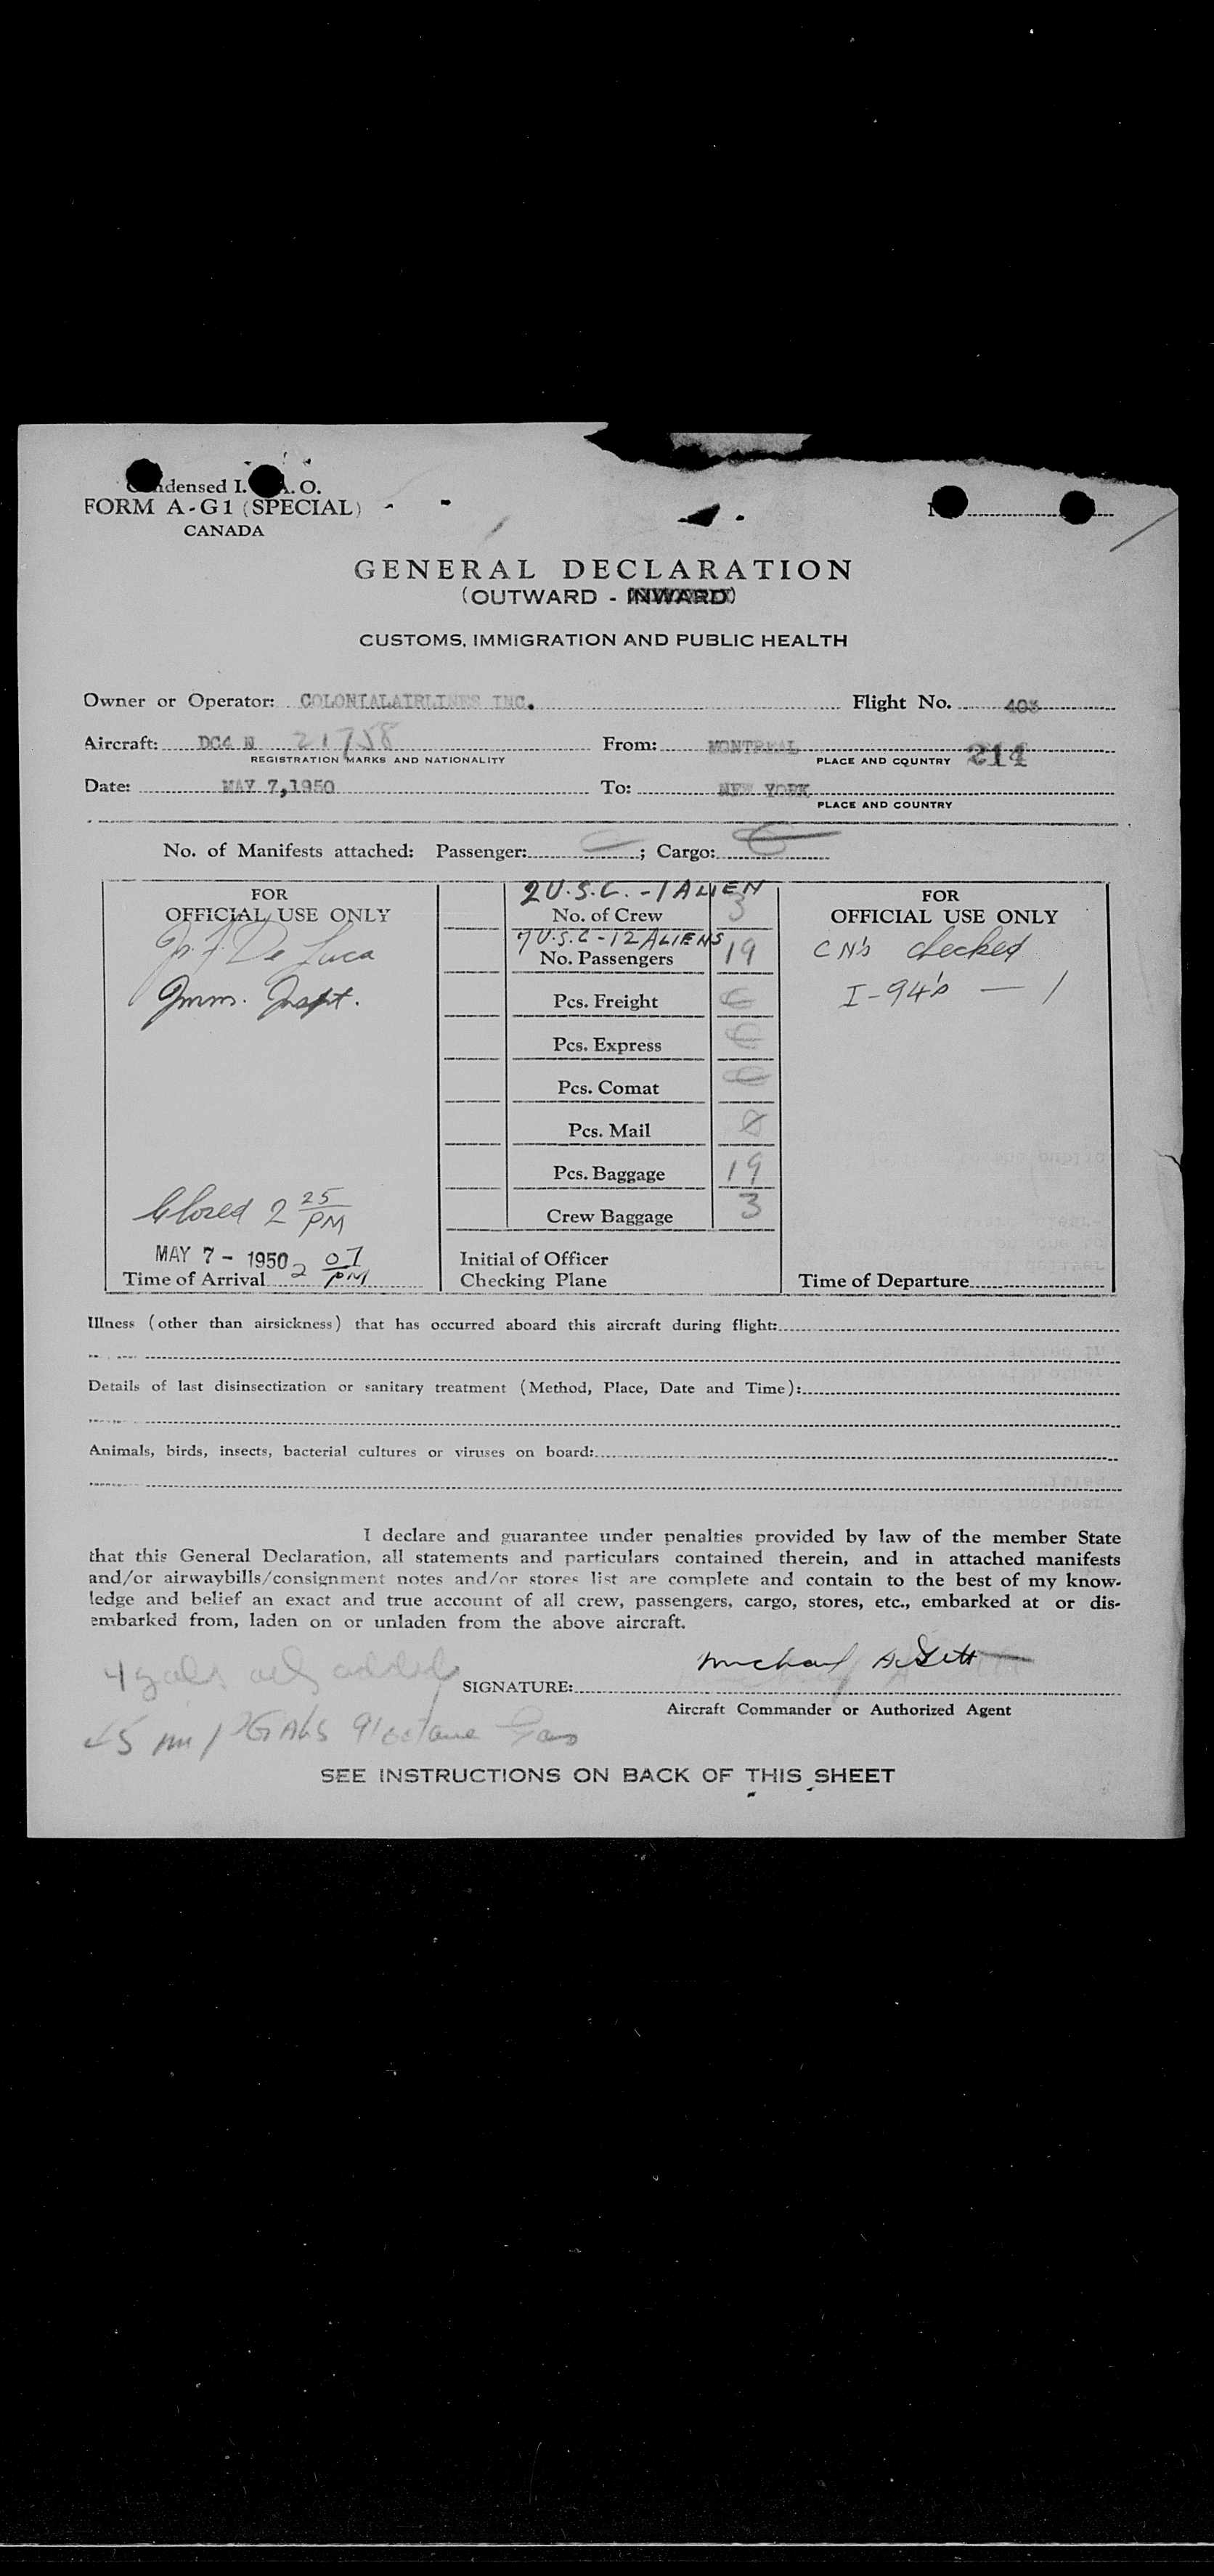 Condensed I. A. O.
FORM A-G1 (SPECIAL)
CANADA
GENERAL DECLARATION
(OUTWARD - INWARD)
CUSTOMS, IMMIGRATION AND PUBLIC HEALTH
Owner or Operator: COLONIALAIRLINES INC. Flight No. 403
Aircraft: DC4 N 21758 From: MONTREAL
REGISTRATION MARKS AND NATIONALITY PLACE AND COUNTRY 214
Date: MAY 7,1950 To: NEW YORK
PLACE AND COUNTRY
No. of Manifests attached: Passenger: ; Cargo:
FOR OFFICIAL USE ONLY
De Luca
Imm. Inspt.
Closed 2 25 PM
MAY 7 - 1950 2 07 PM
Time of Arrival
2 U.S.C. - 1 ALIEN
No. of Crew 3
7 U.S.C - 12 ALIENS
No. Passengers 19
Pcs. Freight
Pcs. Express
Pcs. Comat
Pcs. Mail 0
Pcs. Baggage 19
Crew Baggage 3
Initial of Officer
Checking Plane
FOR OFFICIAL USE ONLY
CN's checked
I-94's — 1
Time of Departure
Illness (other than airsickness) that has occurred aboard this aircraft during flight:
Details of last disinsectization or sanitary treatment (Method, Place, Date and Time):
Animals, birds, insects, bacterial cultures or viruses on board:
I declare and guarantee under penalties provided by law of the member State
that this General Declaration, all statements and particulars contained therein, and in attached manifests
and/or airwaybills/consignment notes and/or stores list are complete and contain to the best of my know-
ledge and belief an exact and true account of all crew, passengers, cargo, stores, etc., embarked at or dis-
embarked from, laden on or unladen from the above aircraft.
4 gals added
SIGNATURE: Michael
Aircraft Commander or Authorized Agent
GALS 91 octane Gas
SEE INSTRUCTIONS ON BACK OF THIS SHEET